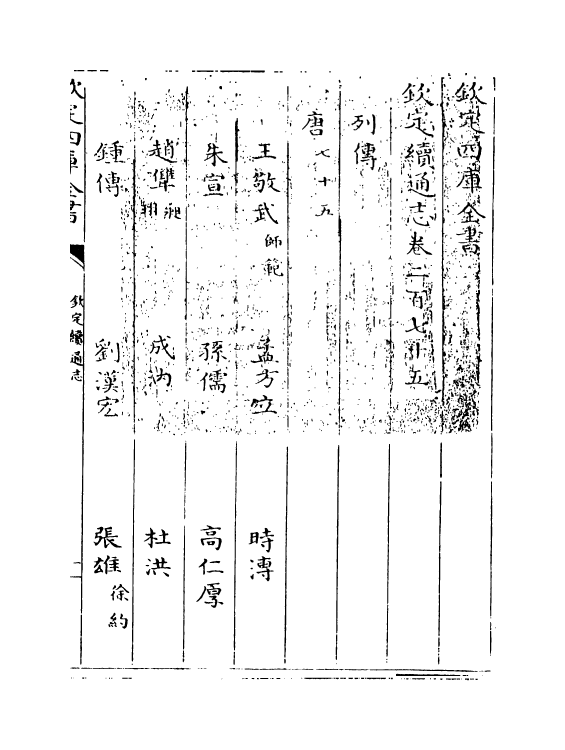 欽定四庫全書
欽定續通志卷二百七十五
列傳
唐七十五
王敬武師範 孟方立 時溥
朱宣 孫儒 高仁厚
趙犨昶珝 成汭 杜洪
鍾傳 劉漢宏 張雄徐約
欽定四庫全書 欽定續通志 一